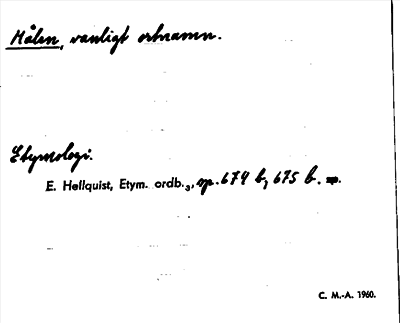 Målen, vanligt ortnamn.
Etymologi.
E. Hellquist, Etym. ordb.₃, sp. 674 b, 675 b.
C. M.-A. 1960.